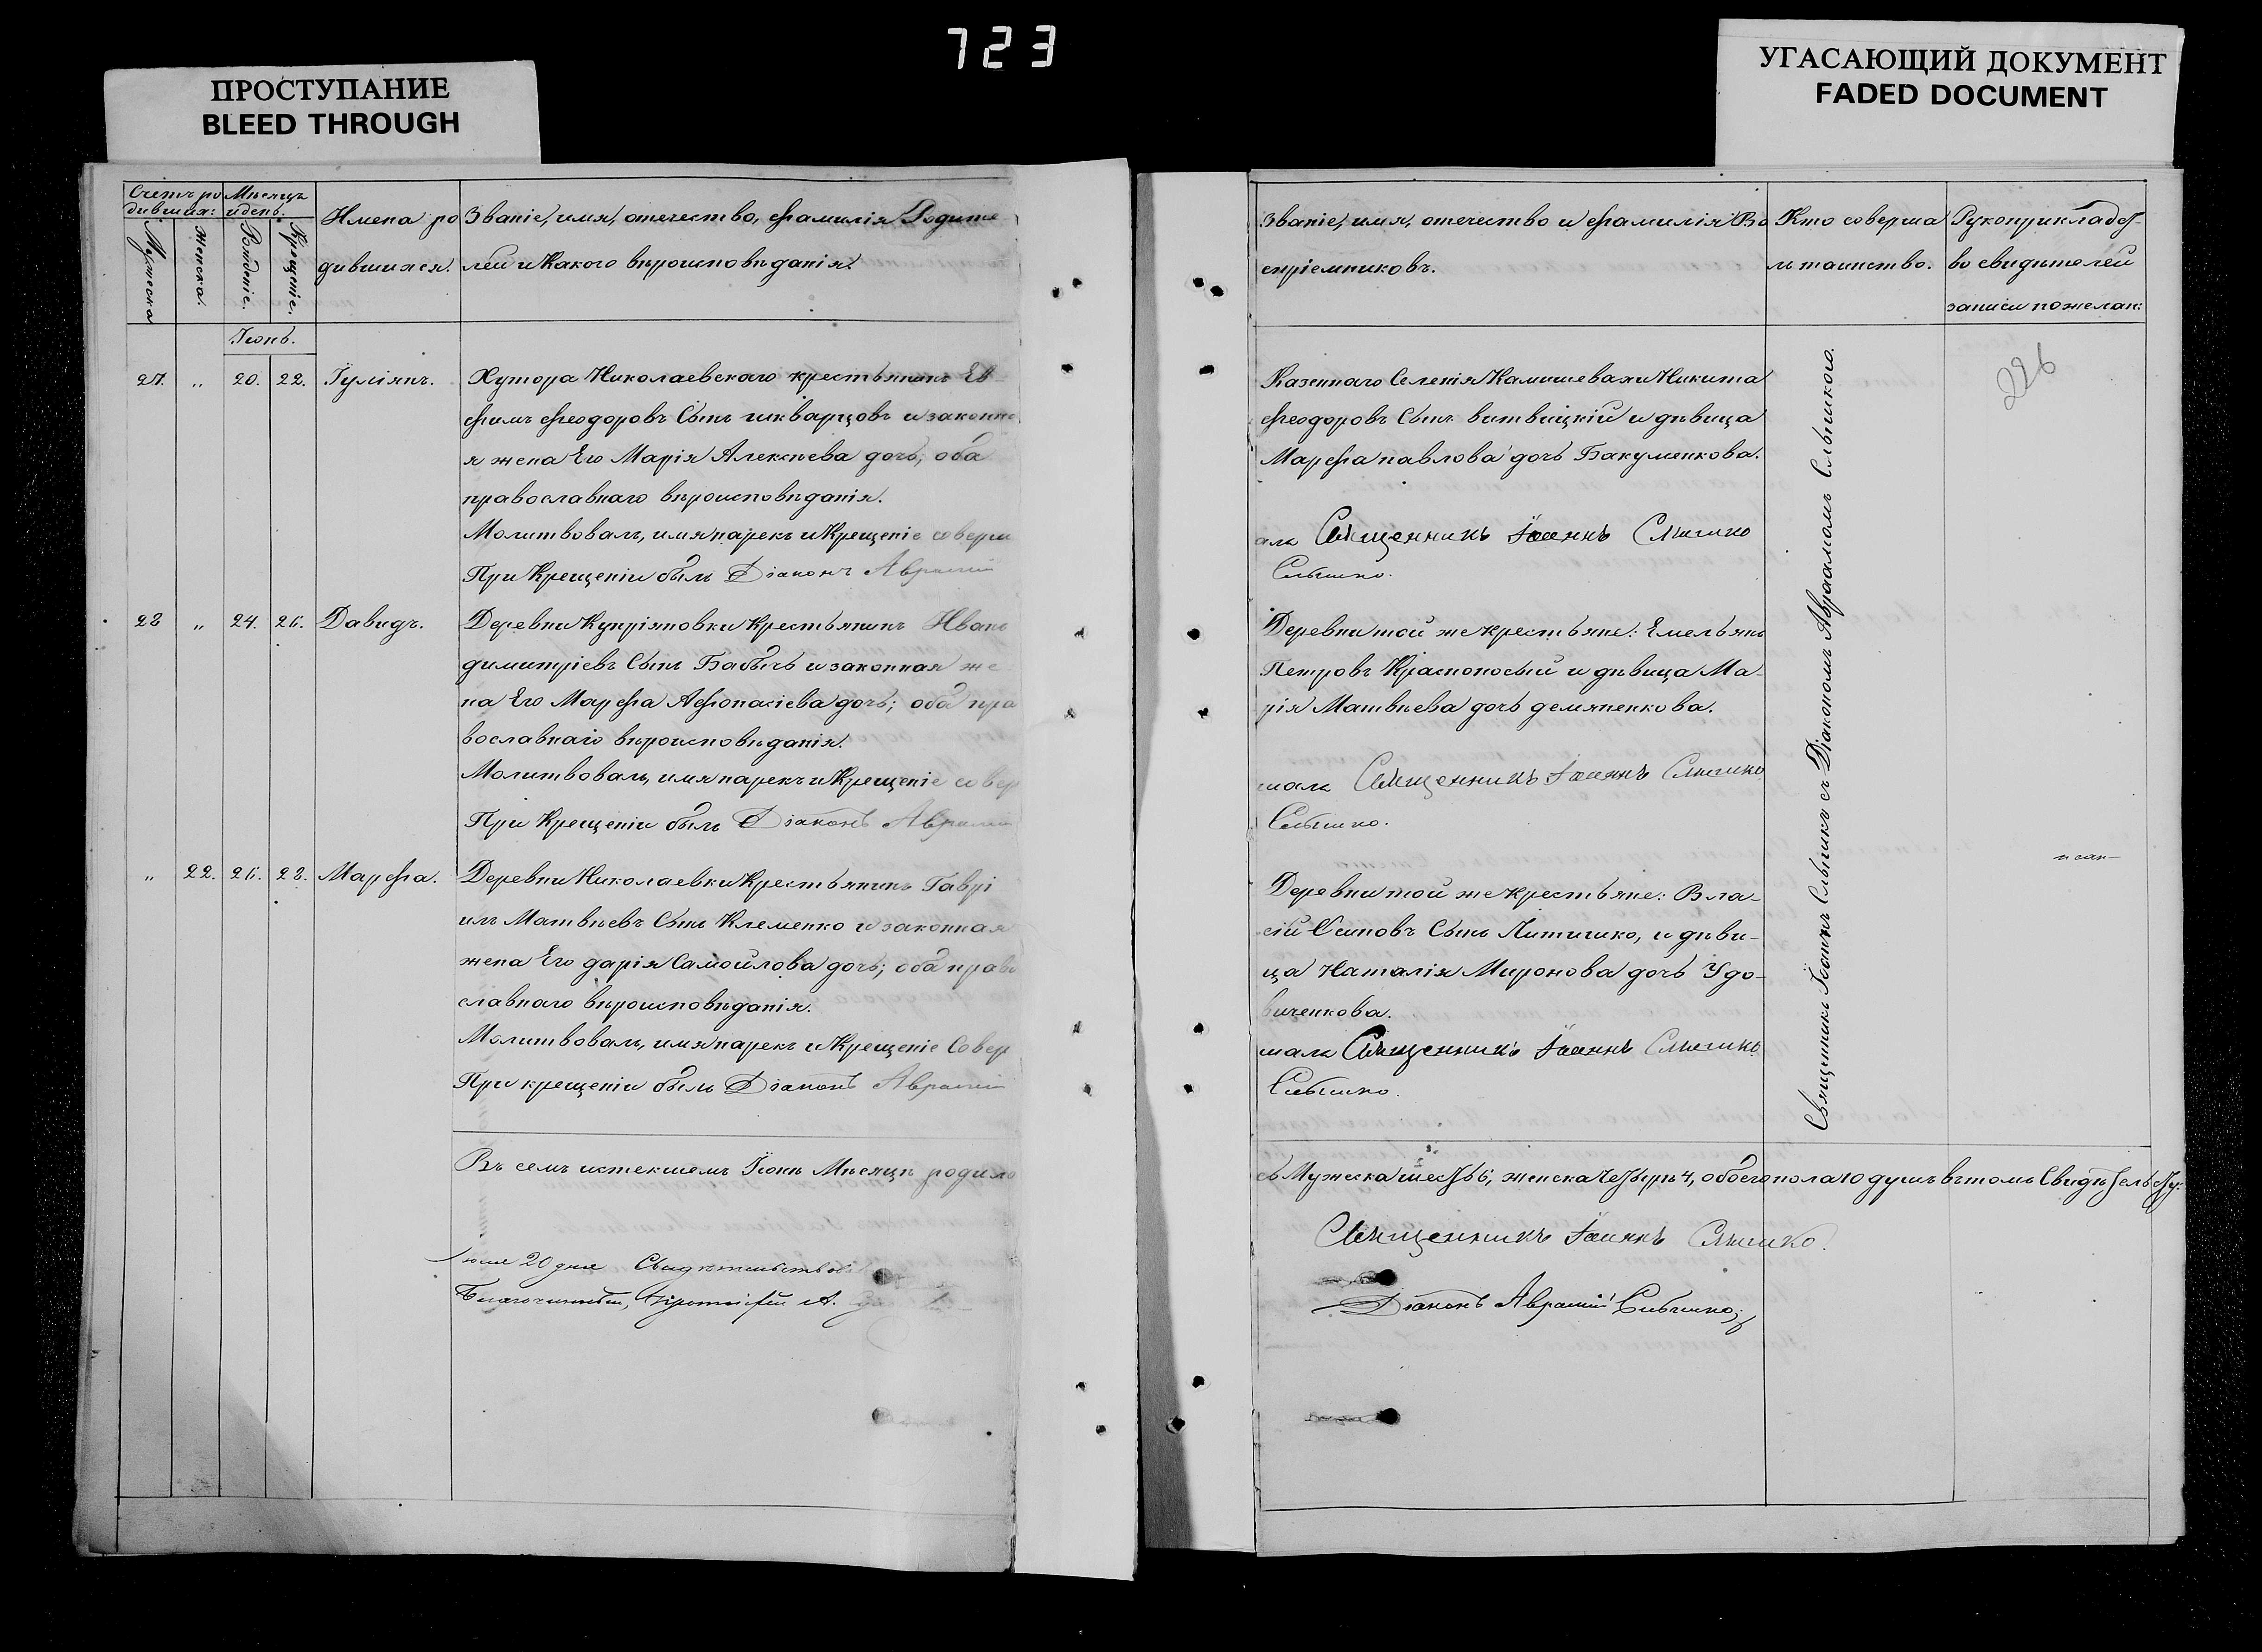 723
ПРОСТУПАНИЕ
BLEED THROUGH
УГАСАЮЩИЙ ДОКУМЕНТ
FADED DOCUMENT
Счетъ ро
дивших:
Мужеска
Женска.
Мѣсяцъ
и день.
Рождение.
Крещеніе.
Имена ро
дившихся.
Званіе, имя, отечество, фамилія Родите
лей и Какого вѣроисповѣданія.
Іюнь.
27. „ 20. 22. Іуліянъ.
Хутора Николаевскаго крестьянинъ Ев
фимъ Феодоровъ Сынъ шкварцовъ и законна
я жена Его Марія Алексѣева дочь; оба
православнаго вѣроисповѣданія.
Молитвовалъ, имя нарекъ и Крещеніе соверш
При Крещеніи былъ Діаконъ Аврамій
28 „ 24. 26. Давидъ.
Деревни Купріяновки Крестьянинъ Иванъ
димитріевъ Сынъ Бабычъ и законная же
на Его Марфа Афонасіева дочь; оба пра
вославнаго вѣроисповѣданія.
Молитвовалъ, имя нарекъ и Крещеніе совер
При Крещеніи былъ Діаконъ Аврамій
„ 22. 26. 28. Марфа.
Деревни Николаевки Крестьянинъ Гаврі
илъ Матвѣевъ Сынъ Клеменко и законная
жена Его дарія Самойлова дочь; оба право
славнаго вѣроисповѣданія.
Молитвовалъ, имя нарекъ и Крещеніе Совер
При крещеніи былъ Діаконъ Аврамій
Въ семъ истекшемъ Іюнѣ Мѣсяцѣ родило
Іюля 20 дня Свидѣтельствов
Благочинный, Протоіерей А.
Званіе, имя, отечество и фамилія Во
спріемниковъ.
Кто соверша
лъ таинство.
Рукоприкладст
во свидѣтелей
записи по желан:
226
Казеннаго Селенія Камышевахи Никита
Феодоровъ Сынъ витвицкій и дѣвица
Марфа павлова дочь Бакуменкова.
алъ Священникъ Іоаннъ Слышко
Слышко.
Деревни той же крестьяне: Емельянъ
Петровъ Красноносый и дѣвица Ма-
рія Матвѣева дочь демяненкова.
шалъ Священникъ Іоаннъ Слышко
Слышко.
Деревни той же крестьяне: Вла-
сій Осиповъ Сынъ Литишко, и дѣви-
ца Наталія Миронова дочь Удо-
виченкова.
шалъ Священникъ Іоаннъ Слышко
Слышко.
Священникъ Іоаннъ Слышкъ съ Діакономъ Авраамомъ Слышкою.
сь Мужеска шесть 6, женска четыри 4, обоего пола 10 душъ въ томъ Свидѣтельству:
Священникъ Іоаннъ Слышко.
Діаконъ Аврамій Слышко;